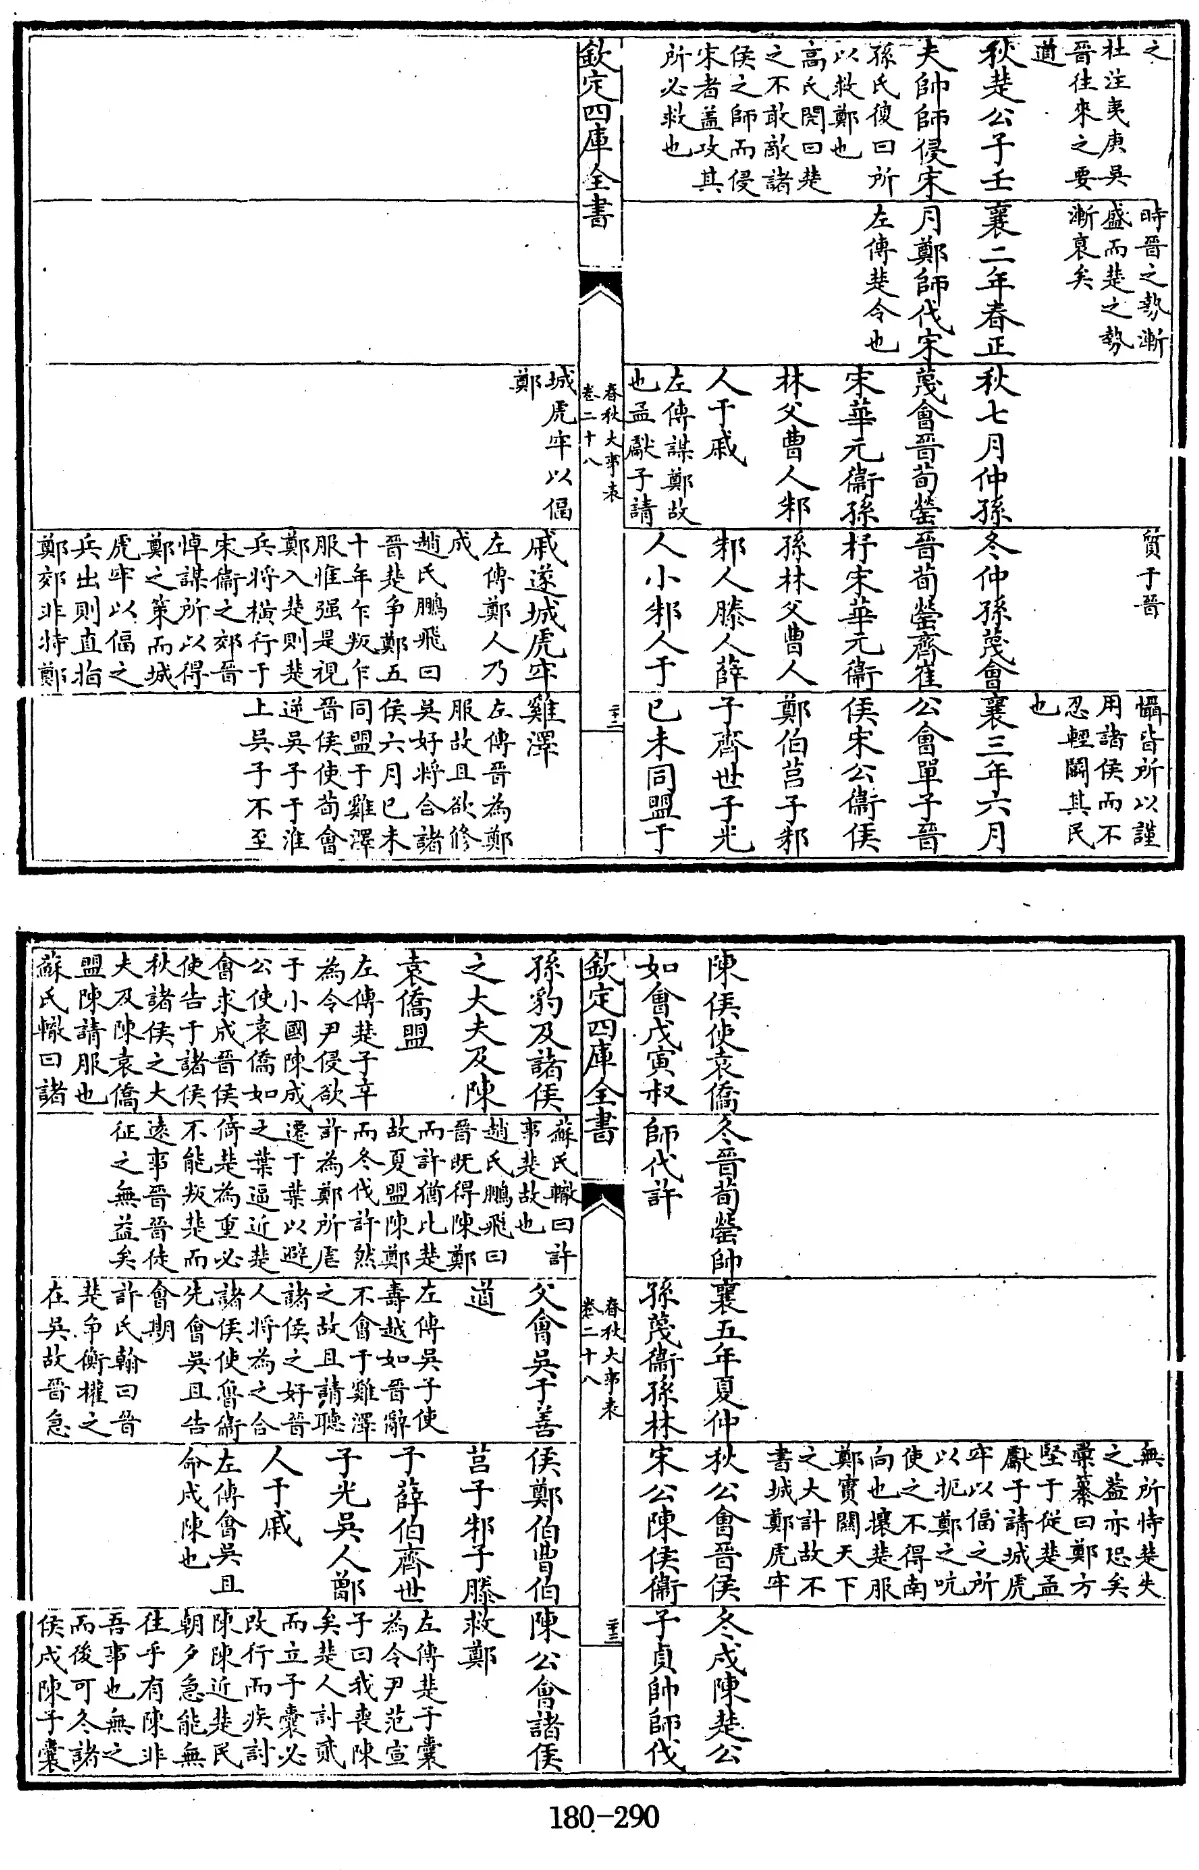 之
杜注夷庚吳
晉往來之要
道
秋楚公子壬
夫帥師侵宋
孫氏復曰所
以救鄭也
高氏閌曰楚
之不敢敵諸
侯之師而侵
宋者蓋攻其
所必救也
時晉之勢漸
盛而楚之勢
漸衰矣
襄二年春正
月鄭師伐宋
左傳楚令也
秋七月仲孫
蔑會晉荀罃
宋華元衞孫
林父曹人邾
人于戚
左傳謀鄭故
也孟獻子請
質于晉
冬仲孫蔑會
晉荀罃齊崔
杼宋華元衞
孫林父曹人
邾人滕人薛
人小邾人于
懾皆所以謹
用諸侯而不
忍輕鬬其民
也
襄三年六月
公會單子晉
侯宋公衞侯
鄭伯莒子邾
子齊世子光
已未同盟于
欽定四庫全書
春秋大事表
卷二十八
二十二
城虎牢以偪
鄭
戚遂城虎牢
左傳鄭人乃
成
趙氏鵬飛曰
晉楚争鄭五
十年乍叛乍
服惟强是視
鄭入楚則楚
兵將橫行于
宋衞之郊晉
悼謀所以得
鄭之策而城
虎牢以偪之
兵出則直指
鄭郊非特鄭
雞澤
左傳晉為鄭
服故且欲修
吳好將合諸
侯六月已未
同盟于雞澤
晉侯使荀會
逆吳子于淮
上吳子不至
陳侯使袁僑
如會戊寅叔
冬晉荀罃帥
師伐許
襄五年夏仲
孫蔑衞孫林
無所恃楚失
之益亦恐矣
彙纂曰鄭方
堅于從楚孟
獻子請城虎
牢以偪之所
以扼鄭之吭
使之不得南
向也攘楚服
鄭實關天下
之大計故不
書城鄭虎牢
秋公會晉侯
宋公陳侯衞
冬戍陳楚公
子貞帥師伐
欽定四庫全書
春秋大事表
卷二十八
二十三
孫豹及諸侯
之大夫及陳
袁僑盟
左傳楚子辛
為令尹侵欲
于小國陳成
公使袁僑如
會求成晉侯
使告于諸侯
秋諸侯之大
夫及陳袁僑
盟陳請服也
蘇氏轍曰諸
蘇氏轍曰許
事楚故也
趙氏鵬飛曰
晉旣得陳鄭
而許猶比楚
故夏盟陳鄭
而冬伐許然
許為鄭所虐
遷于葉以避
之葉逼近楚
倚楚為重必
不能叛楚而
遠事晉晉徒
征之無益矣
父會吳于善
道
左傳吳子使
壽越如晉辭
不會于雞澤
之故且請聽
諸侯之好晉
人將為之合
諸侯使魯衞
先會吳且告
會期
許氏翰曰晉
楚争衡權之
在吳故晉急
侯鄭伯曹伯
莒子邾子滕
子薛伯齊世
子光吳人鄫
人于戚
左傳會吳且
命戍陳也
陳公會諸侯
救鄭
左傳楚子囊
為令尹范宣
子曰我喪陳
矣楚人討貳
而立子囊必
改行而疾討
陳陳近楚民
朝夕急能無
往乎有陳非
吾事也無之
而後可冬諸
侯戍陳子囊
180-290